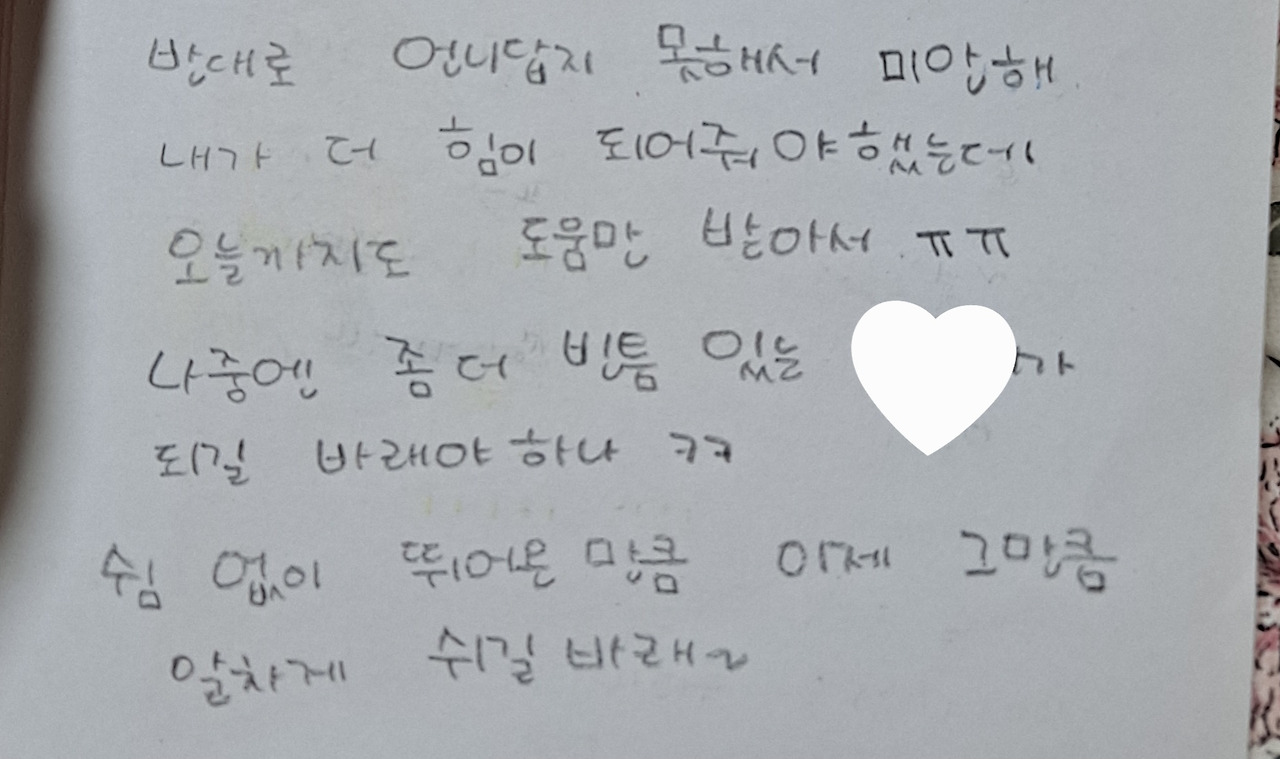 반대로 언니답지 못해서 미안해
내가 더 힘이 되어줘야했는데
오늘까지도 도움만 받아서 ㅠㅠ
나중엔 좀 더 빈틈 있는 가
되길 바래야하나 ㅋㅋ
쉼 없이 뛰어온 만큼 이제 그만큼
알차게 쉬길 바래~